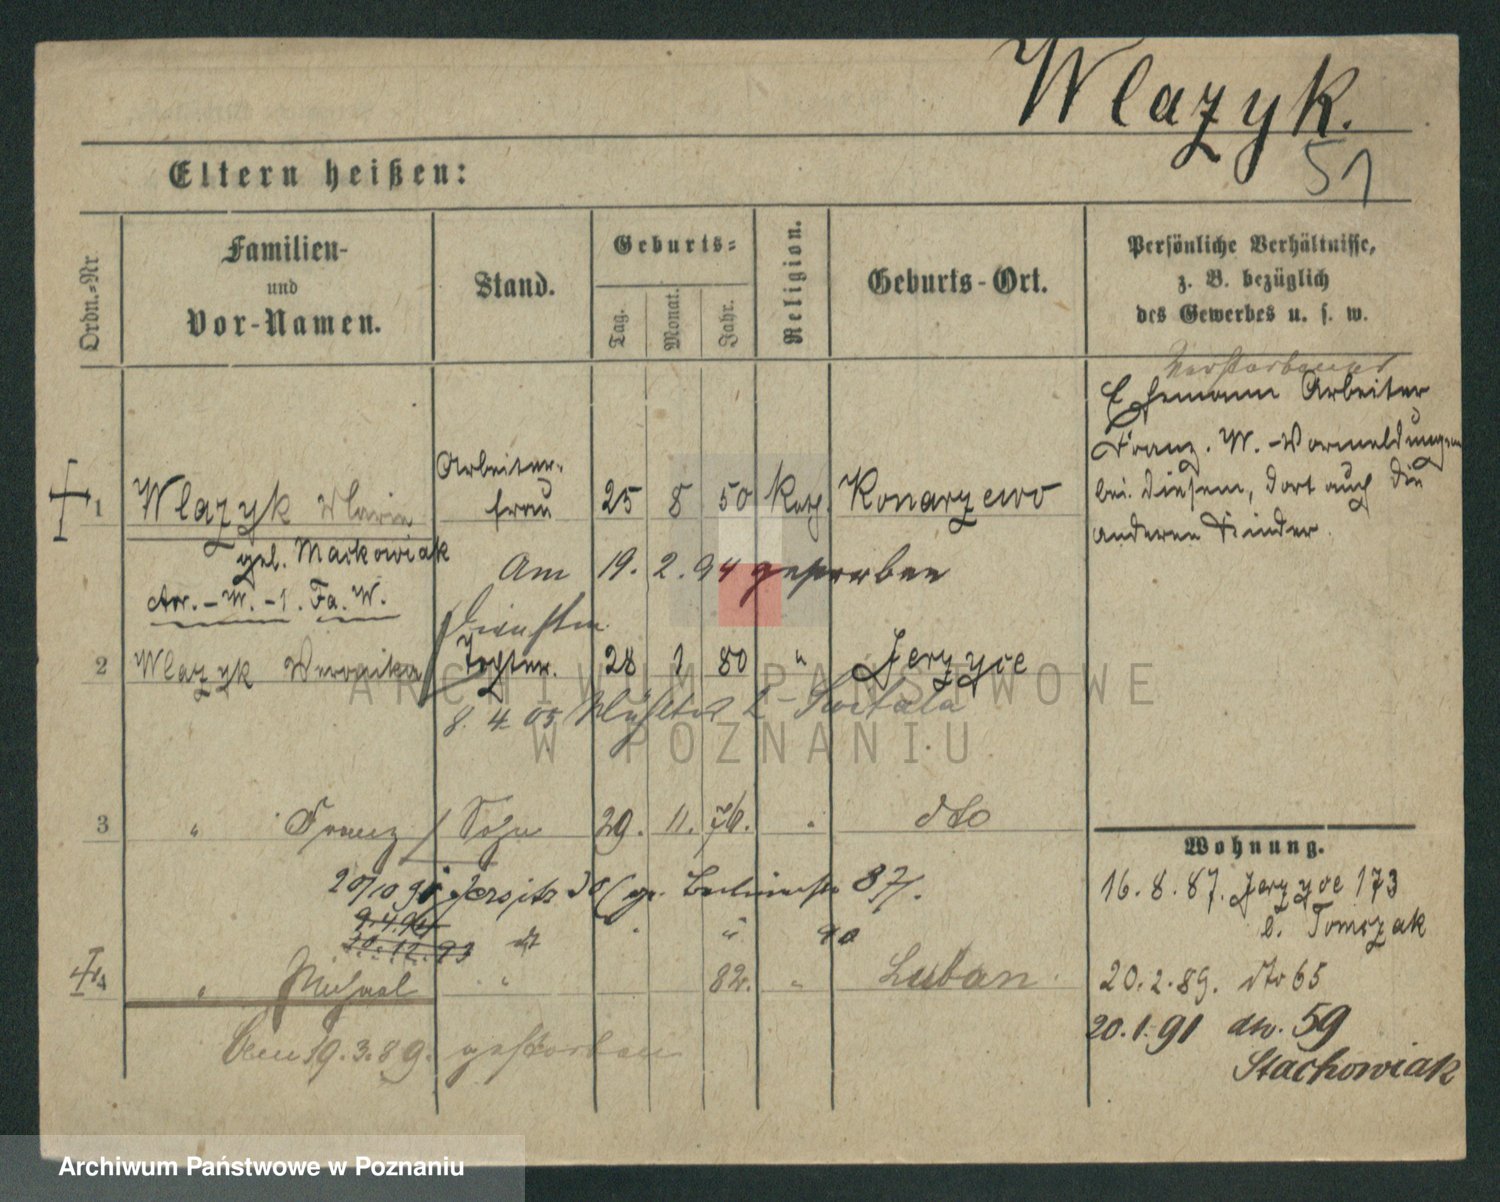 Wlazyk.
51
Eltern heißen:
Ordn.-Nr
Familien-
und
Vor-Namen.
Stand.
Geburts-
Tag.
Monat.
Jahr.
Religion.
Geburts-Ort.
Persönliche Verhältnisse,
z. B. bezüglich
des Gewerbes u. s. w.
Verstorbener
Ehemann Arbeiter
Franz. W. - Vormeldungen
bei diesem, dort auch die
anderen Kinder.
1 Wlazyk Maria Arbeiter-
frau 25 8 50 Kath. Konarzewo
geb. Markowiak
Am 19. 2. 94 gestorben
Fa. W.
Dienstm.
2 Wlazyk Weronika Tochter. 28 1 80 " Jerzyce
8. 4. 05
3 " Franz / Sohn 29. 11. 76. " dto
20/10 Jersitz gr. Berlinerstr 87.
9.4.94
20.12.93 dt " " 90
4 " Michael " 82. " Luban.
Am 19. 3. 89. gestorben
Wohnung.
16. 8. 87. Jerzyce 173
b. Tomczak
20. 2. 89. dto 65
20. 1. 91 dto. 59
Stachowiak
ARCHIWUM PAŃSTWOWE
W POZNANIU
Archiwum Państwowe w Poznaniu